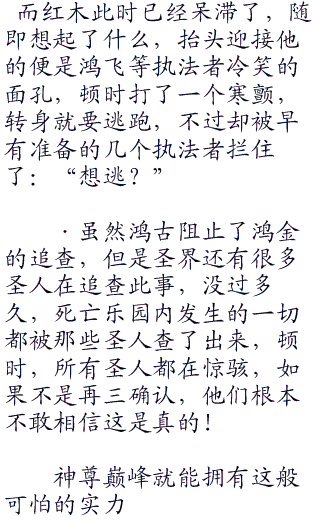 而红木此时已经呆滞了，随
即想起了什么，抬头迎接他
的便是鸿飞等执法者冷笑的
面孔，顿时打了一个寒颤，
转身就要逃跑，不过却被早
有准备的几个执法者拦住
了：“想逃？”
·虽然鸿古阻止了鸿金
的追查，但是圣界还有很多
圣人在追查此事，没过多
久，死亡乐园内发生的一切
都被那些圣人查了出来，顿
时，所有圣人都在惊骇，如
果不是再三确认，他们根本
不敢相信这是真的！
神尊巅峰就能拥有这般
可怕的实力